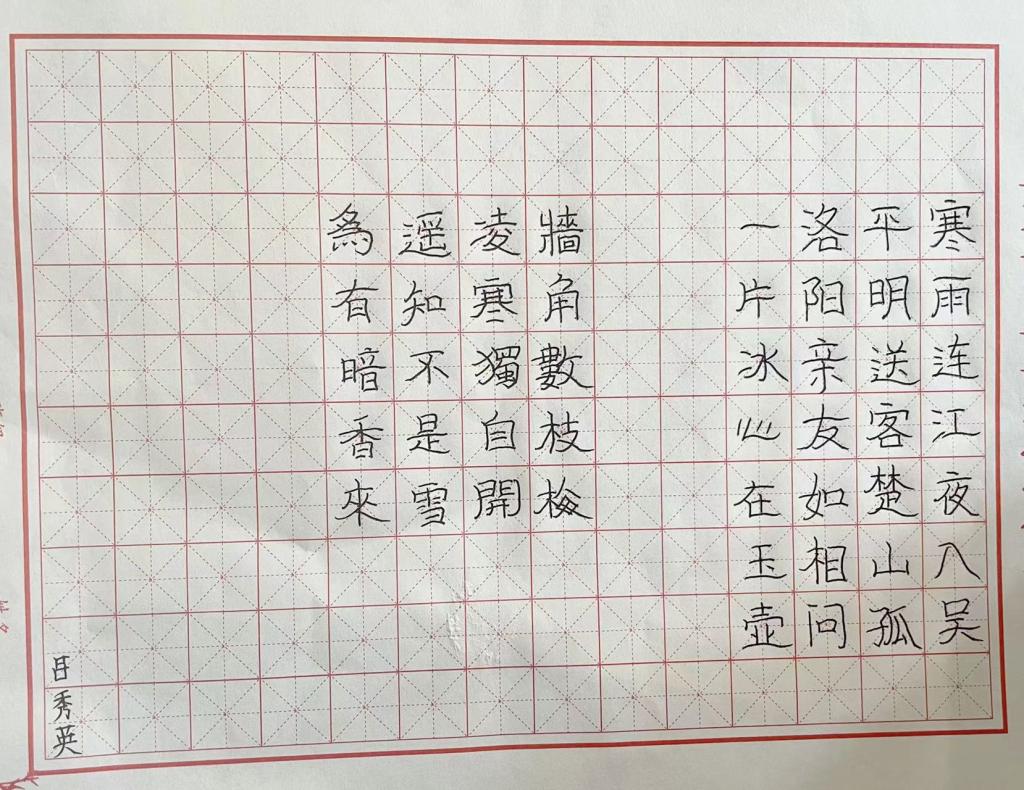 寒雨连江夜入吴
平明送客楚山孤
洛阳亲友如相问
一片冰心在玉壶
牆角數枝梅
凌寒獨自開
遥知不是雪
為有暗香來
秀英